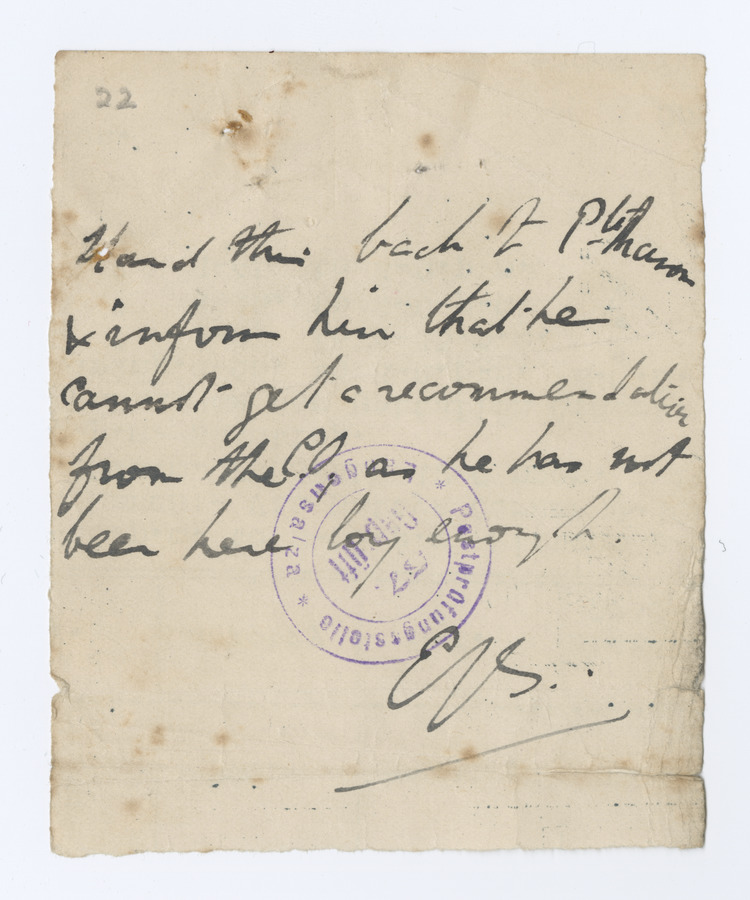 22
Hand this back to Pte Mason
& inform him that he
cannot get a recommendation
from the CO as he has not
been here long enough.
Postprüfungsstelle * Langensalza *
Geprüft
37.